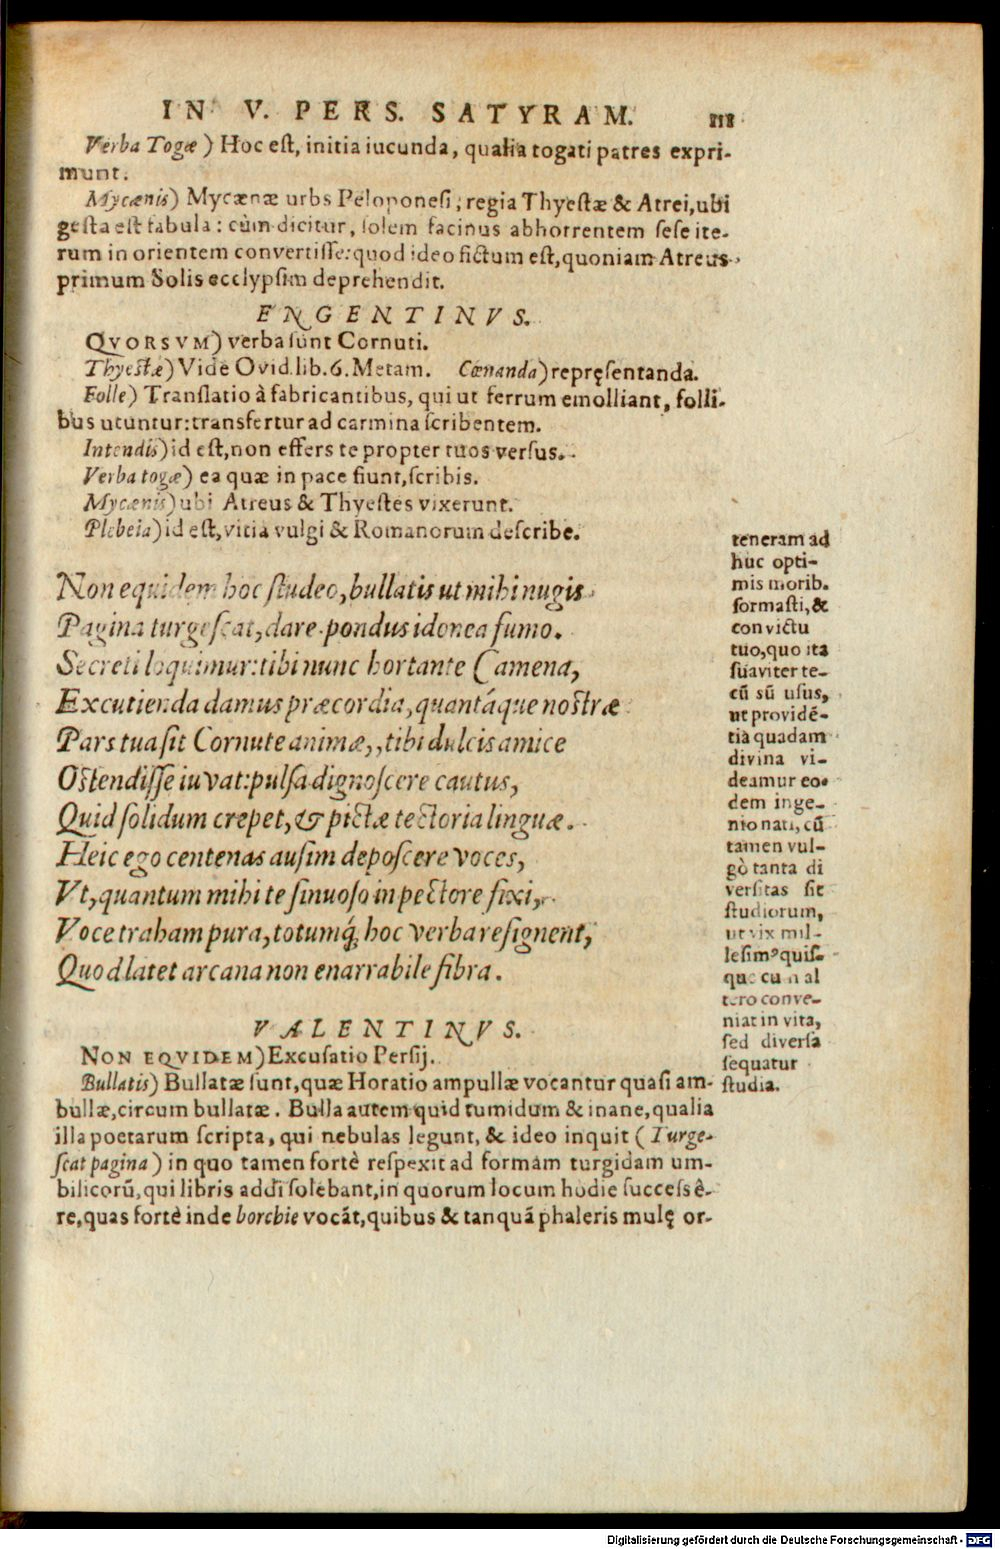 IN V. PERS. SATYRAM. 111
Verba Togæ) Hoc eſt, initia iucunda, qualia togati patres expri-
munt.
Mycænis) Mycænæ urbs Peloponeſi, regia Thyeſtæ & Atrei, ubi
geſta eſt fabula: cùm dicitur, ſolem facinus abhorrentem ſeſe ite-
rum in orientem convertiſſe: quod ideo fictum eſt, quoniam Atreus
primum Solis ecclypſim deprehendit.
ENGENTINVS.
QVORSVM) verba ſunt Cornuti.
Thyeſtæ) Vide Ovid. lib. 6. Metam. Cœnanda) repręſentanda.
Folle) Tranſlatio à fabricantibus, qui ut ferrum emolliant, folli-
bus utuntur: transfertur ad carmina ſcribentem.
Intendis) id eſt, non effers te propter tuos verſus.
Verba togæ) ea quæ in pace fiunt, ſcribis.
Mycænis) ubi Atreus & Thyeſtes vixerunt.
Plebeia) id eſt, vitia vulgi & Romanorum deſcribe.
Non equidem hoc ſtudeo, bullatis ut mihi nugis
Pagina turgeſcat, dare pondus idonea fumo.
Secreti loquimur: tibi nunc hortante Camena,
Excutienda damus præcordia, quantáque noſtræ
Pars tua ſit Cornute animæ,, tibi dulcis amice
Oſtendiſſe iuvat: pulſa dignoſcere cautus,
Quid ſolidum crepet, & pictæ tectoria linguæ.
Heic ego centenas auſim depoſcere voces,
Vt, quantum mihi te ſinuoſo in pectore fixi,
Voce traham pura, totumq́; hoc verba reſignent,
Quod latet arcana non enarrabile fibra.
teneram ad
huc opti-
mis morib.
formaſti, &
convictu
tuo, quo ita
ſuaviter te-
cũ sũ uſus,
ut providẽ-
tia quadam
divina vi-
deamur eo-
dem inge-
nio nati, cũ
tamen vul-
gò tanta di
verſitas ſit
ſtudiorum,
ut vix mil-
leſimꝰ quiſ-
que cum al
tero conve-
niat in vita,
ſed diverſa
ſequatur
ſtudia.
VALENTINVS.
NON EQVIDEM) Excuſatio Perſij.
Bullatis) Bullatæ ſunt, quæ Horatio ampullæ vocantur quaſi am-
bullæ, circum bullatæ. Bulla autem quid tumidum & inane, qualia
illa poetarum ſcripta, qui nebulas legunt, & ideo inquit (Turge-
ſcat pagina) in quo tamen fortè reſpexit ad formam turgidam um-
bilicorũ, qui libris addi ſolebant, in quorum locum hodie ſucceſsê-
re, quas fortè inde borchie vocãt, quibus & tanquã phaleris mulę or-
Digitalisierung gefördert durch die Deutsche Forschungsgemeinschaft - DFG